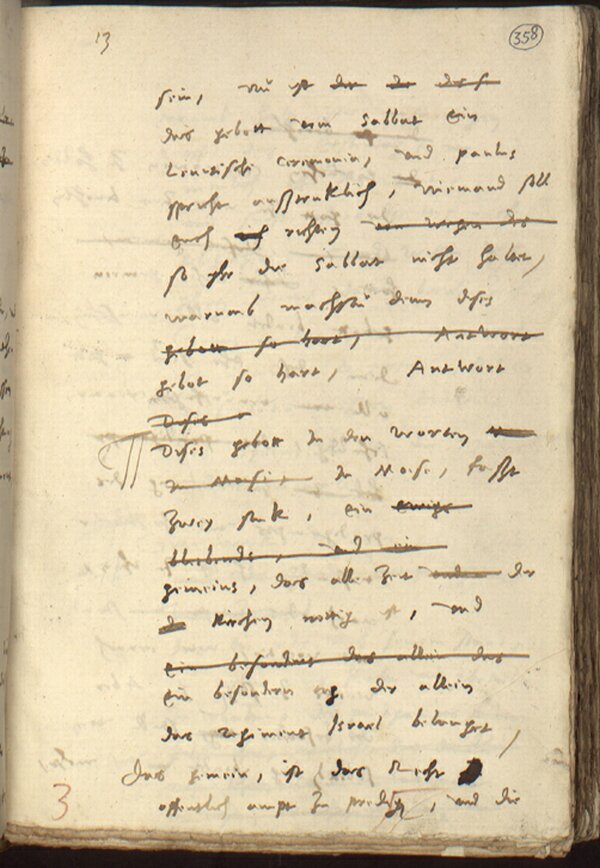 13
358
sein, Nu ist der de das s
das gebott vom Sabbat ein
Levitische ceremonia, vnd paulus
spricht außtruklich, Niemand soll
euch richten von wegen des
so yhr die Sabbat nicht haltet,
warumb machstu denn dises
gebott so hart, Antwort
gebot so hart, Antwort
Dises
Dises gebott in den worten
in Mosi, in Mose, fasst
zwey stuk, ein ewigs
bleibends, vnd ein
gemeins, das alle zeit der
Kirchen nottig ist, vnd
ein besonders das allein das
ein besondern der allein
das regiment Israel belanget,
Das gemein, ist das Recht
offentlich ampt zu predig, vnd die
3